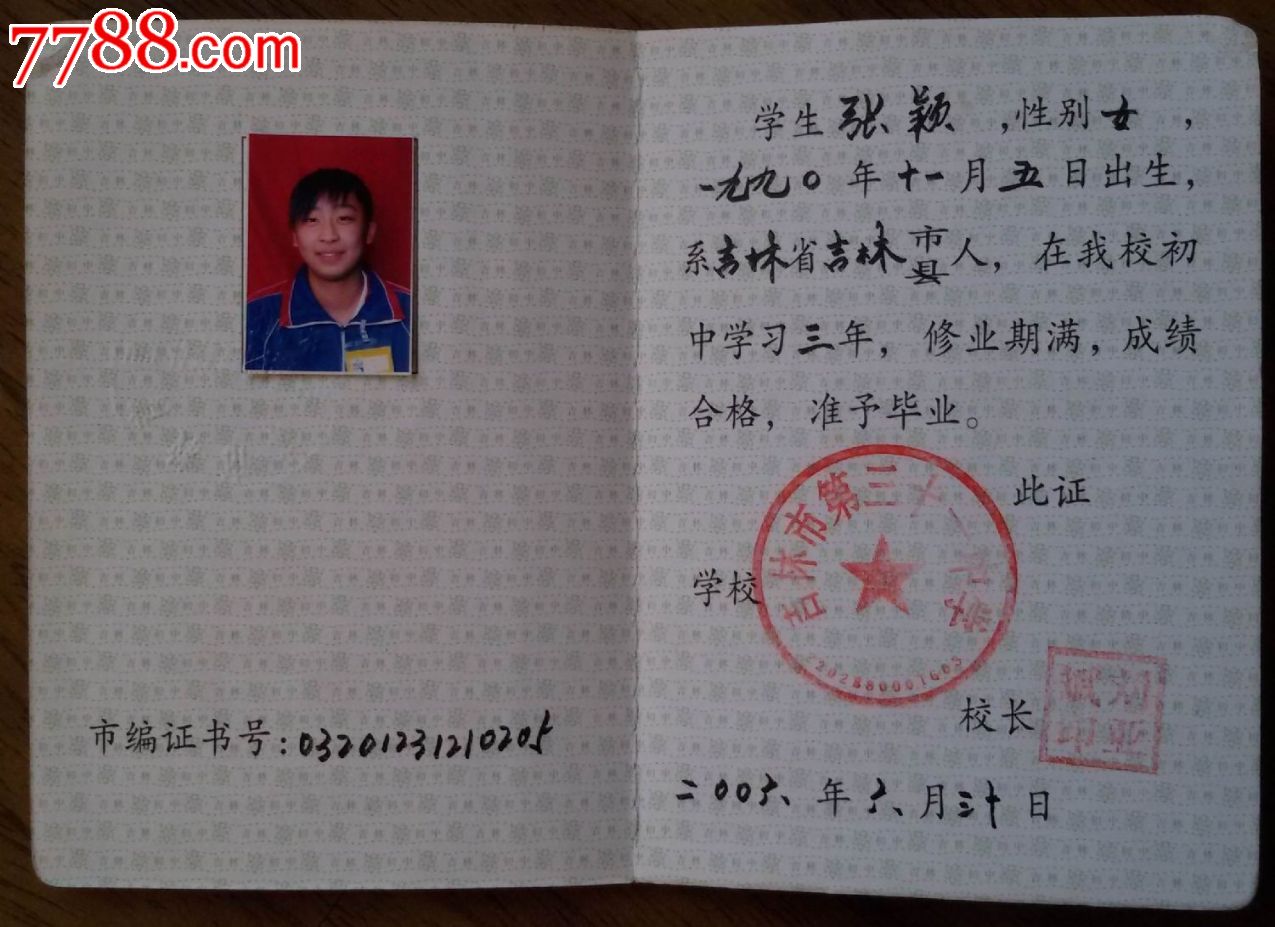 7788.com
学生张颖,性别女,
一九九〇年十一月五日出生,
系吉林省吉林市县人,在我校初
中学习三年,修业期满,成绩
合格,准予毕业。
此证
学校
吉林市第三十一中学
校长
市编证书号:03201231210205
二00六年六月三十日